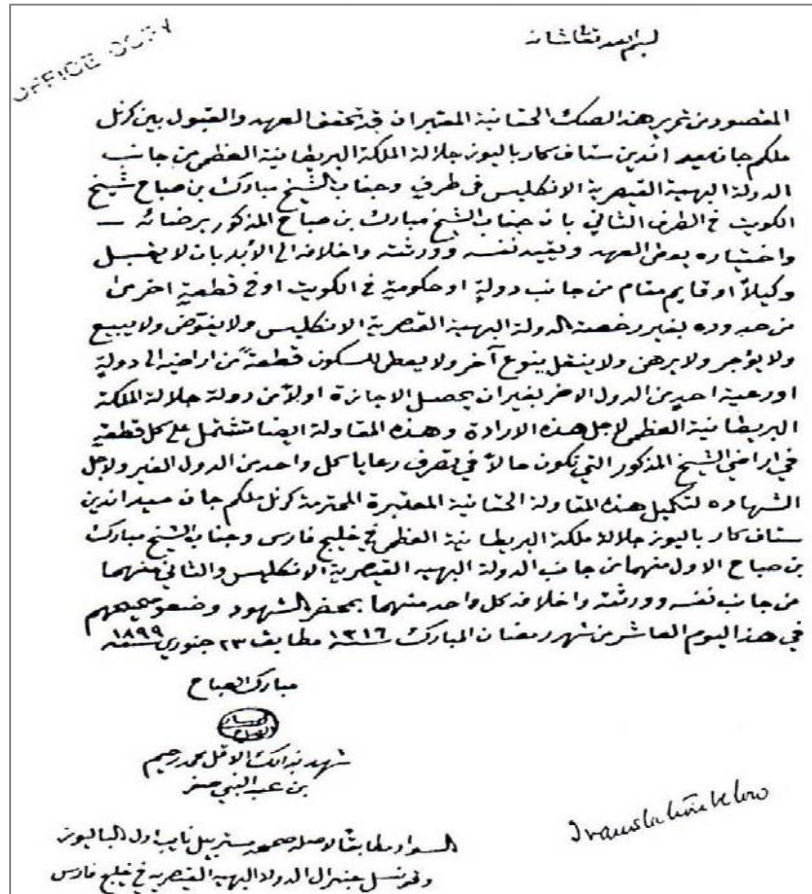 OFFICE COPY
بسم الله تعالى شانه
المقصود من تحرير هذه الصك الحقانية المعتبر ان قد تحقق العهد والقبول بين كرنل
ملكم جان ميد اندين ستاف كار باليوز جلالة الملكة البريطانية العظمى من جانب
الدولة البهية القيصرية الانكليس في طرف وجناب الشيخ مبارك بن صباح شيخ
الكويت في الطرف الثاني بان جناب الشيخ مبارك بن صباح المذكور برضائه
واختياره يعطى العهد ويقيد نفسه وورثته واخلافه الى الأبد بان لا يقبل
وكيلاً او قايم مقام من جانب دولةٍ او حكومةٍ في الكويت او في قطعةٍ اخرى
من حدوده بغير رخصة الدولة البهية القيصرية الانكليس ولا يفوّض ولا يبيع
ولا يؤجر ولا يرهن ولا ينقل بنوع آخر ولا يعطى للسكون قطعةً من اراضيه الى دولةٍ
او رعية احدٍ من الدول الاخر بغير ان يحصل الاجازة اولاً من دولة جلالة الملكة
البريطانية العظمى لاجل هذه الارادة وهذه المقاولة ايضا تشتمل على كل قطعةٍ
في اراضي الشيخ المذكور التي تكون حالاً في تصرف رعايا كل واحد من الدول الغير ولاجل
الشهاده لتكميل هذه المقاولة الحقانية المعتبرة المحترمة كرنل ملكم جان ميد اندين
ستاف كار باليوز جلالة ملكة البريطانية العظمى في خليج فارس وجناب الشيخ مبارك
بن صباح الاول منهما من جانب الدولة البهيه القيصرية الانكليس والثاني منهما
من جانب نفسه وورثته واخلافه كل واحد منهما بمحضر الشهود وضعو صحيحهم
في هذا اليوم العاشر من شهر رمضان المبارك سنة ١٣١٦ مطابق ٢٣ جنوري سنة ١٨٩٩
مبارك الصباح
مبارك الصباح
شهد بذالك الاقل محمد رحيم
بن عبد النبي صفر
السواد مطابقا لاصله صحيح مستر نايب اول الباليوز
وقونسل جنرال الدولة البهيه القيصريه في خليج فارس
Translation below